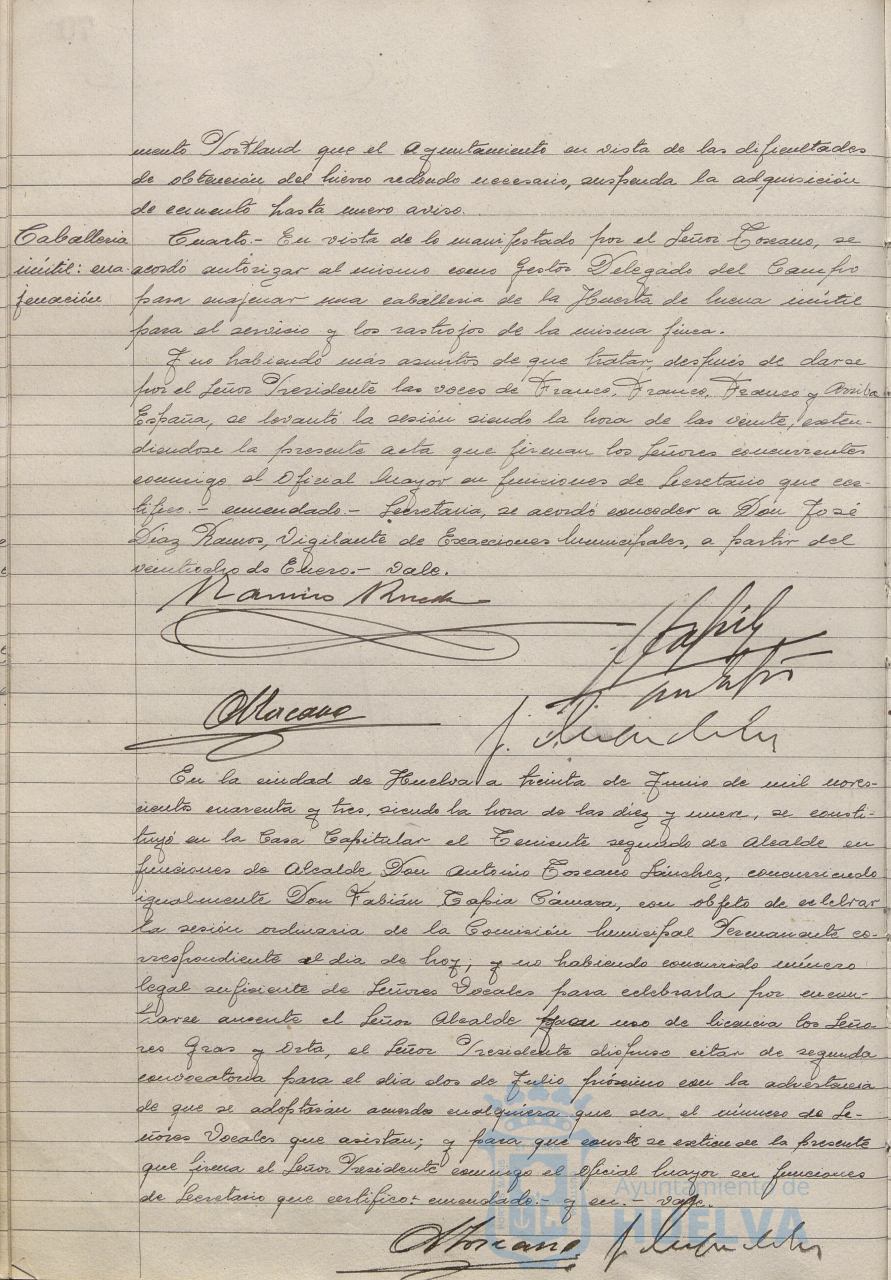 mento Portland que el Ayuntamiento en vista de las dificultades
de obtención del hierro redondo necesario, suspenda la adquisición
de cemento hasta nuevo aviso.
Caballeria
inútil: ena-
jenación
Cuarto.- En vista de lo manifestado por el Señor Toscano, se
acordó autorizar al mismo como Gestor Delegado del Campo
para enajenar una caballeria de la Huerta de luena inútil
para el servicio y los rastrojos de la misma finca.
Y no habiendo más asuntos de que tratar, después de darse
por el Señor Presidente las voces de Franco, Franco, Franco y Arriba
España, se levantó la sesión siendo la hora de las veinte, exten-
diendose la presente acta que firman los Señores concurrentes
conmigo el Oficial Mayor en funciones de Secretario que cer-
tifico.- enmendado.- Secretaria, se acordó conceder a Don José
Díaz Ramos, Vigilante de Exacciones Municipales, a partir del
veintiocho de Enero.- vale.
Ramiro Rueda
F. Tapia
A Toscano
En la ciudad de Huelva a treinta de Junio de mil nove-
cientos cuarenta y tres, siendo la hora de las diez y nueve, se consti-
tuyó en la Casa Capitular el Teniente segundo de Alcalde en
funciones de Alcalde Don Antonio Toscano Sánchez, concurriendo
igualmente Don Fabián Tapia Cámara, con objeto de celebrar
la sesión ordinaria de la Comisión Municipal Permanente co-
rrespondiente al dia de hoy; y no habiendo concurrido número
legal suficiente de Señores Vocales para celebrarla por encon-
trarse ausente el Señor Alcalde y en uso de licencia los Seño-
res Gras y Orta, el Señor Presidente dispuso citar de segunda
convocatoria para el dia dos de Julio próximo con la advertencia
de que se adoptarán acuerdos cualquiera que sea el número de Se-
ñores Vocales que asistan; y para que conste se extiende la presente
que firma el Señor Presidente conmigo el Oficial Mayor en funciones
de Secretario que certifico: enmendado.- y en.- vale.
Ayuntamiento de
HUELVA
A Toscano